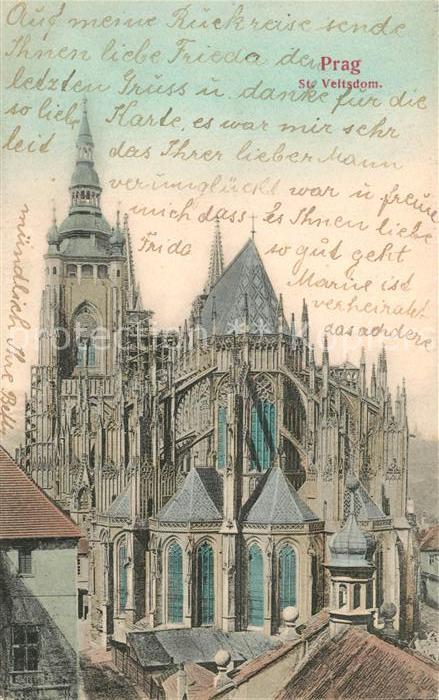 Auf meine Rückreise sende
Ihnen liebe Frieda den
Prag
St. Veitsdom.
letzten Gruss u. danke für die
so lieb Karte, es war mir sehr
leit das Ihrer lieber Mann
verunglückt war u freue
mich dass es Ihnen liebe
Frida so gut geht
Marie ist
verheiratet
das andere
mündlich Ihre